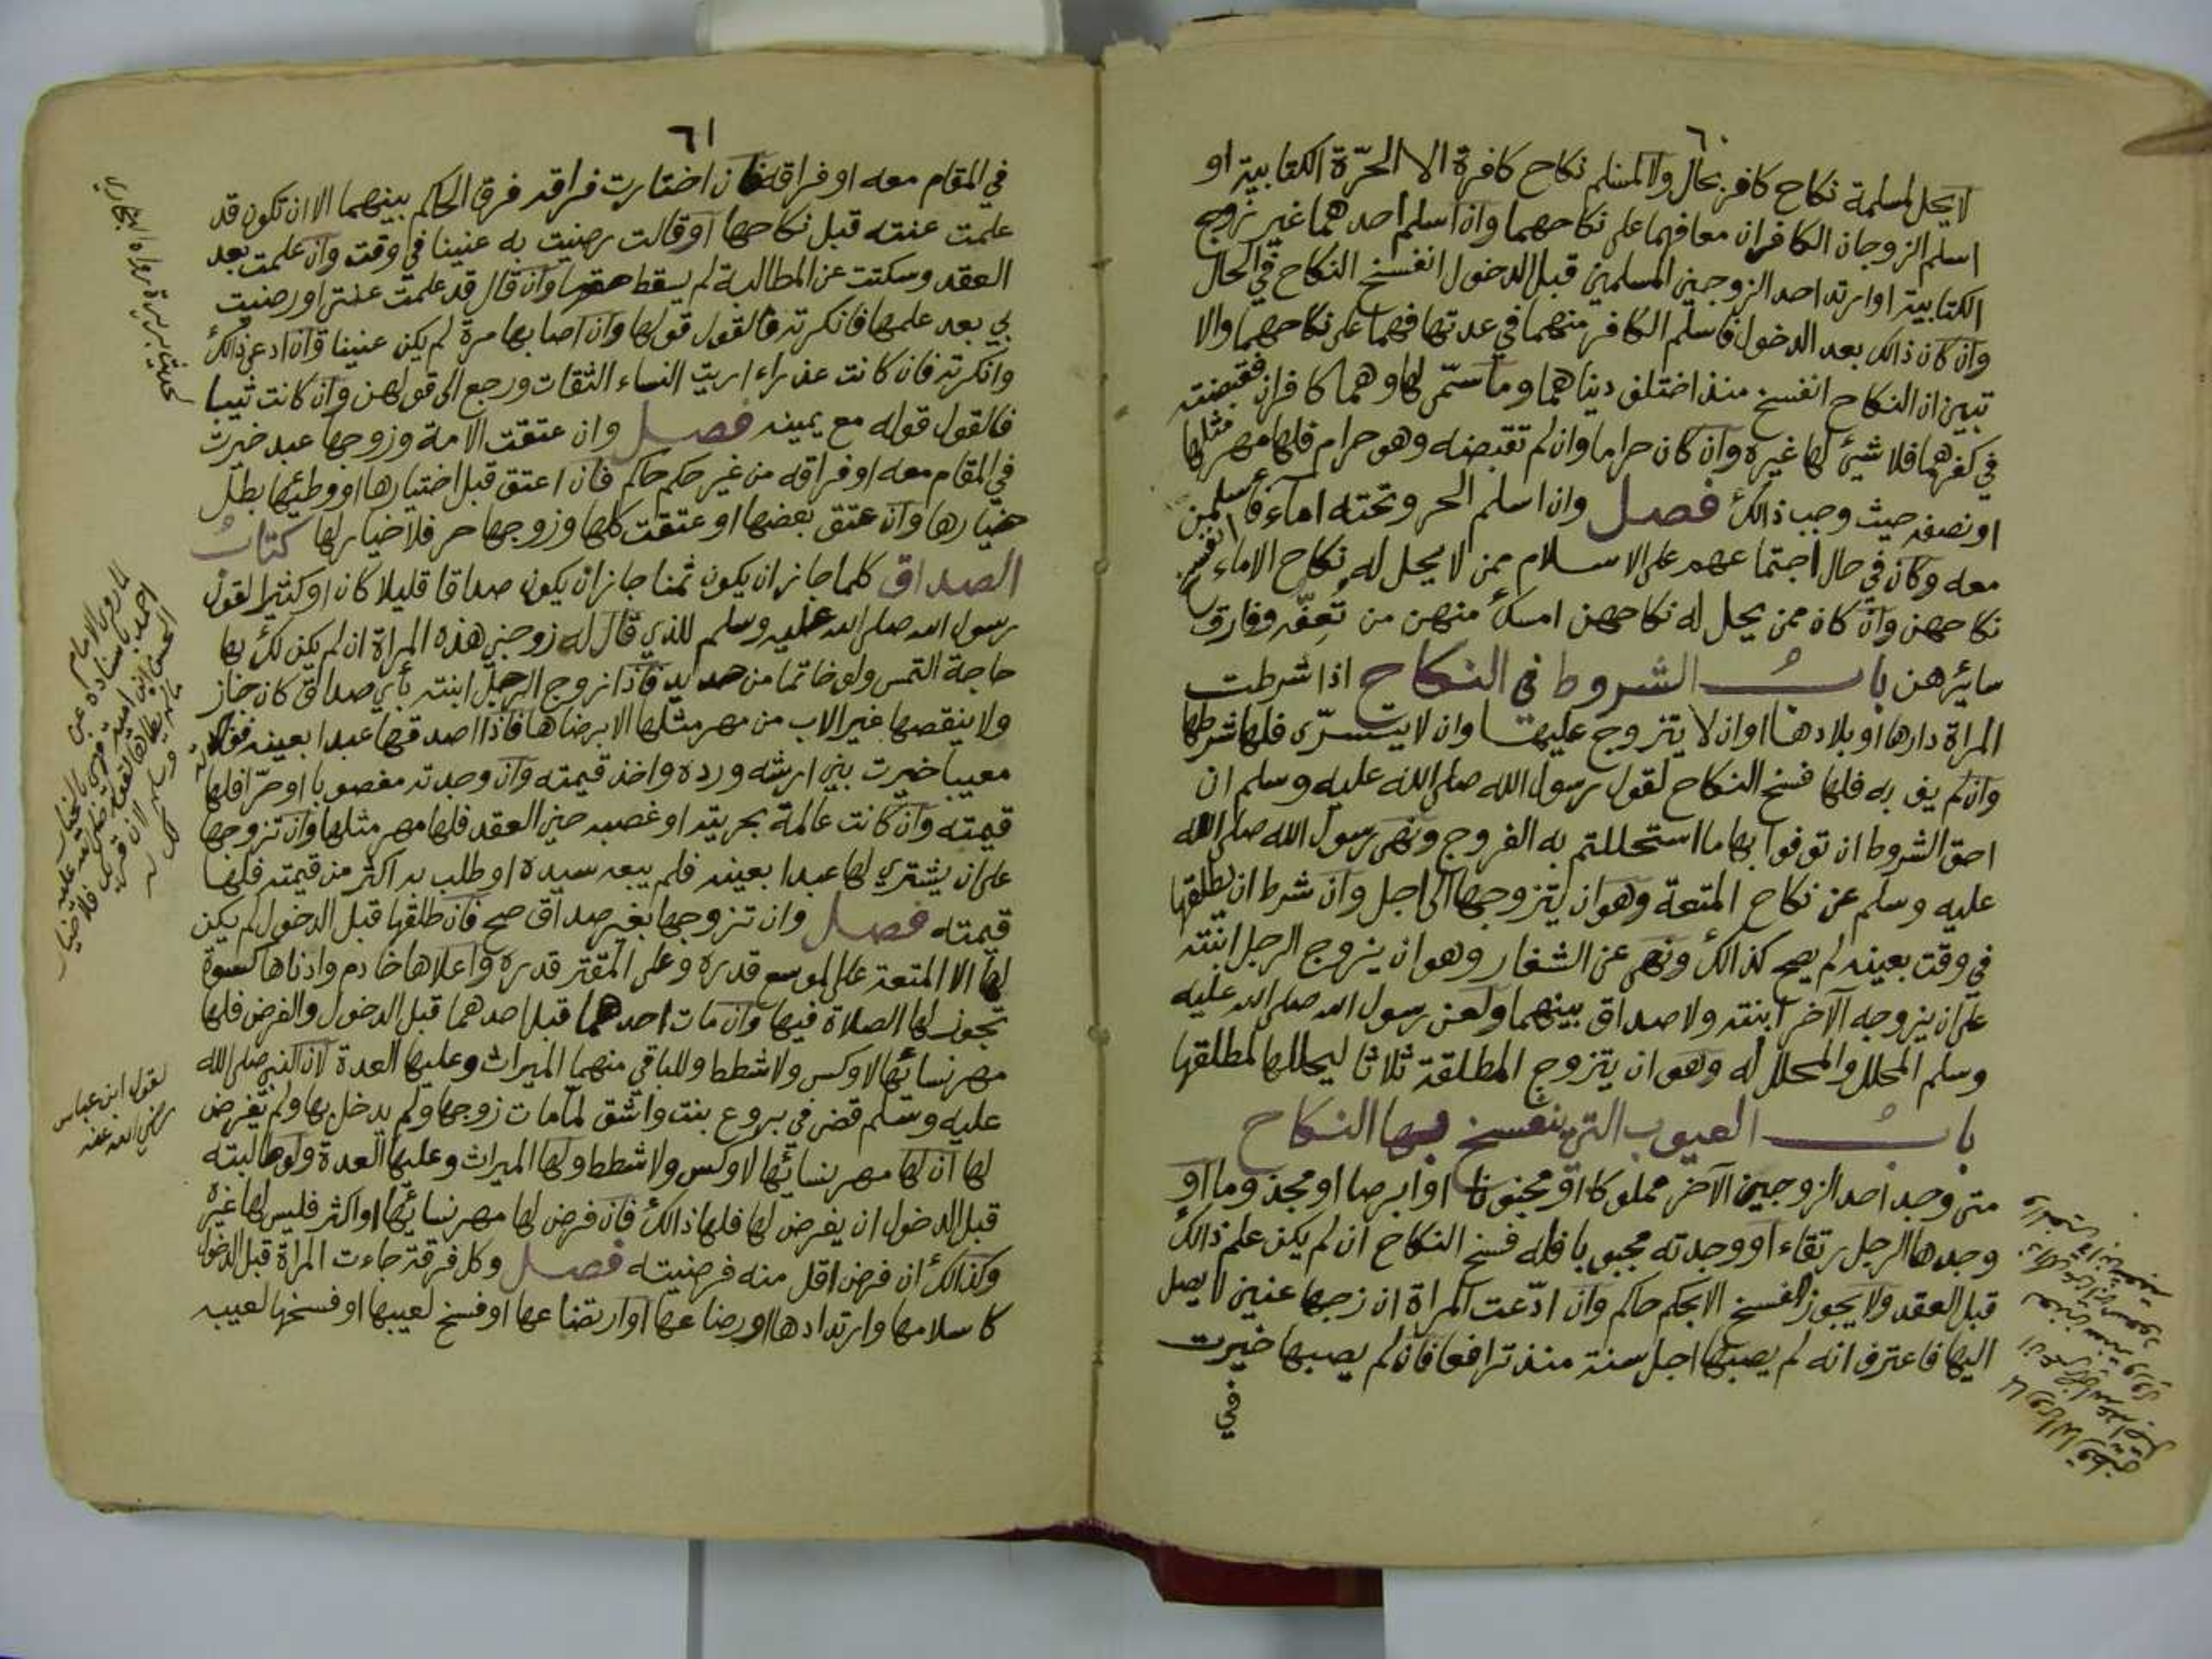 ٦٠
لا يحل لمسلمة نكاح كافر بحال ولا لمسلم نكاح كافرة الا الحرّة الكتابية او
اسلم الزوجان الكافران معا فهما على نكاحهما وان اسلم احدهما غير زوج
الكتابية او ارتد احد الزوجين المسلمين قبل الدخول انفسخ النكاح في الحال
وان كان ذالك بعد الدخول فاسلم الكافر منهما في عدتها فهما على نكاحهما والا
تبين ان النكاح انفسخ منذ اختلف ديناهما وما سمّى لها وهما كافران فقبضته
في كفرهما فلا شيئ لها غيره وان كان حراما وان لم تقبضه وهو حرام فلها مهر مثلها
او نصفه حيث وجب ذالك فصل وان اسلم الحر وتحته اماء فأسلمن
معه وكان في حال اجتماعهم على الاسلام ممن لا يحل له نكاح الاماء انفسخ
نكاحهن وان كان ممن يحل له نكاحهن امسك منهن من تعفّه وفارق
سائرهن باب الشروط في النكاح اذا شرطت
المراة دارها او بلادها او ان لا يتزوج عليها وان لا يتسرّى فلها شرطها
وان لم يف به فلها فسخ النكاح لقول رسول الله صلى الله عليه وسلم ان
احق الشروط ان توفوا بها ما استحللتم به الفروج ونهى رسول الله صلى الله
عليه وسلم عن نكاح المتعة وهو ان يتزوجها الى اجل وان شرط ان يطلقها
في وقت بعينه لم يصح كذالك ونهى عن الشغار وهو ان يزوج الرجل ابنته
على ان يزوجه الآخر ابنته ولا صداق بينهما ولعن رسول الله صلى الله عليه
وسلم المحلل والمحلل له وهو ان يتزوج المطلقة ثلاثا ليحللها لمطلقها
باب العيوب التي ينفسخ بها النكاح
متى وجد احد الزوجين الآخر مملوكا او مجنونا او ابرصا او مجذوما او
وجدها الرجل رتقاء او وجدته مجبوبا فله فسخ النكاح ان لم يكن علم ذالك
قبل العقد ولا يجوز الفسخ الا بحكم حاكم وان ادّعت المراة ان زجها عنين لا يصل
اليها فاعترف انه لم يصبها اجل سنة منذ ترافعا فان لم يصبها خيرت
في
٦١
في المقام معه او فراقه فان اختارت فراقه فرق الحاكم بينهما الا ان تكون قد
علمت عنته قبل نكاحها او قالت رضيت به عنينا في وقت وان علمت بعد
العقد وسكتت عن المطالبة لم يسقط حقها وان قال قد علمت عنتي او رضيت
بي بعد علمها فانكرته فالقول قولها وان اصابها مرة لم يكن عنينا وان ادعى ذالك
وانكرته فان كانت عذراء اريت النساء الثقات ورجع الى قولهن وان كانت ثيبا
فالقول قوله مع يمينه فصل وان عتقت الامة وزوجها عبد خيرت
في المقام معه او فراقه من غير حكم حاكم فان اعتق قبل اختيارها او وطئها بطل
خيارها وان عتق بعضها او عتقت كلها وزوجها حر فلا خيار لها كتاب
الصداق كلما جاز ان يكون ثمنا جاز ان يكون صداقا قليلا كان او كثيرا لقول
رسول الله صلى الله عليه وسلم للذي قال له زوجني هذه المراة ان لم يكن لك بها
حاجة التمس ولو خاتما من حديد فاذا زوج الرجل ابنته بأي صداق كان جاز
ولا ينقصها غير الاب من مهر مثلها الا برضاها فاذا اصدقها عبدا بعينه فوجدته
معيبا خيرت بين ارشه ورده واخذ قيمته وان وجدته مغصوبا او حرّا فلها
قيمته وان كانت عالمة بحريته او غصبه حين العقد فلها مهر مثلها وان تزوجها
على ان يشتري لها عبدا بعينه فلم يبعه سيده او طلب به اكثر من قيمته فلها
قيمته فصل وان تزوجها بغير صداق صح فان طلقها قبل الدخول لم يكن
لها الا المتعة على الموسع قدره وعلى المقتر قدره واعلاها خادم وادناها كسوة
تجوز لها الصلاة فيها وان مات احدهما قبل احدهما قبل الدخول والفرض فلها
مهر نسائها لا وكس ولا شطط وللباقي منهما الميراث وعليها العدة لان النبي صلى الله
عليه وسلم قضى في بروع بنت واشق لما مات زوجها ولم يدخل بها ولم يفرض
لها ان لها مهر نسائها لا وكس ولا شطط ولها الميراث وعليها العدة ولو طالبته
قبل الدخول ان يفرض لها فلها ذالك فان فرض لها مهر نسائها او اكثر فليس لها غيره
وكذالك ان فرض اقل منه فرضيته فصل وكل فرقة جاءت المراة قبل الدخول
كاسلامها وارتدادها او رضاعها او ارتضاعها او فسخ لعيبها او فسخها لعيبه
لحديث بريرة رواه البخاري
لما روى الامام
احمد باسناده عن
الحسن ابن امية
لقول ابن عباس
رضي الله عنه